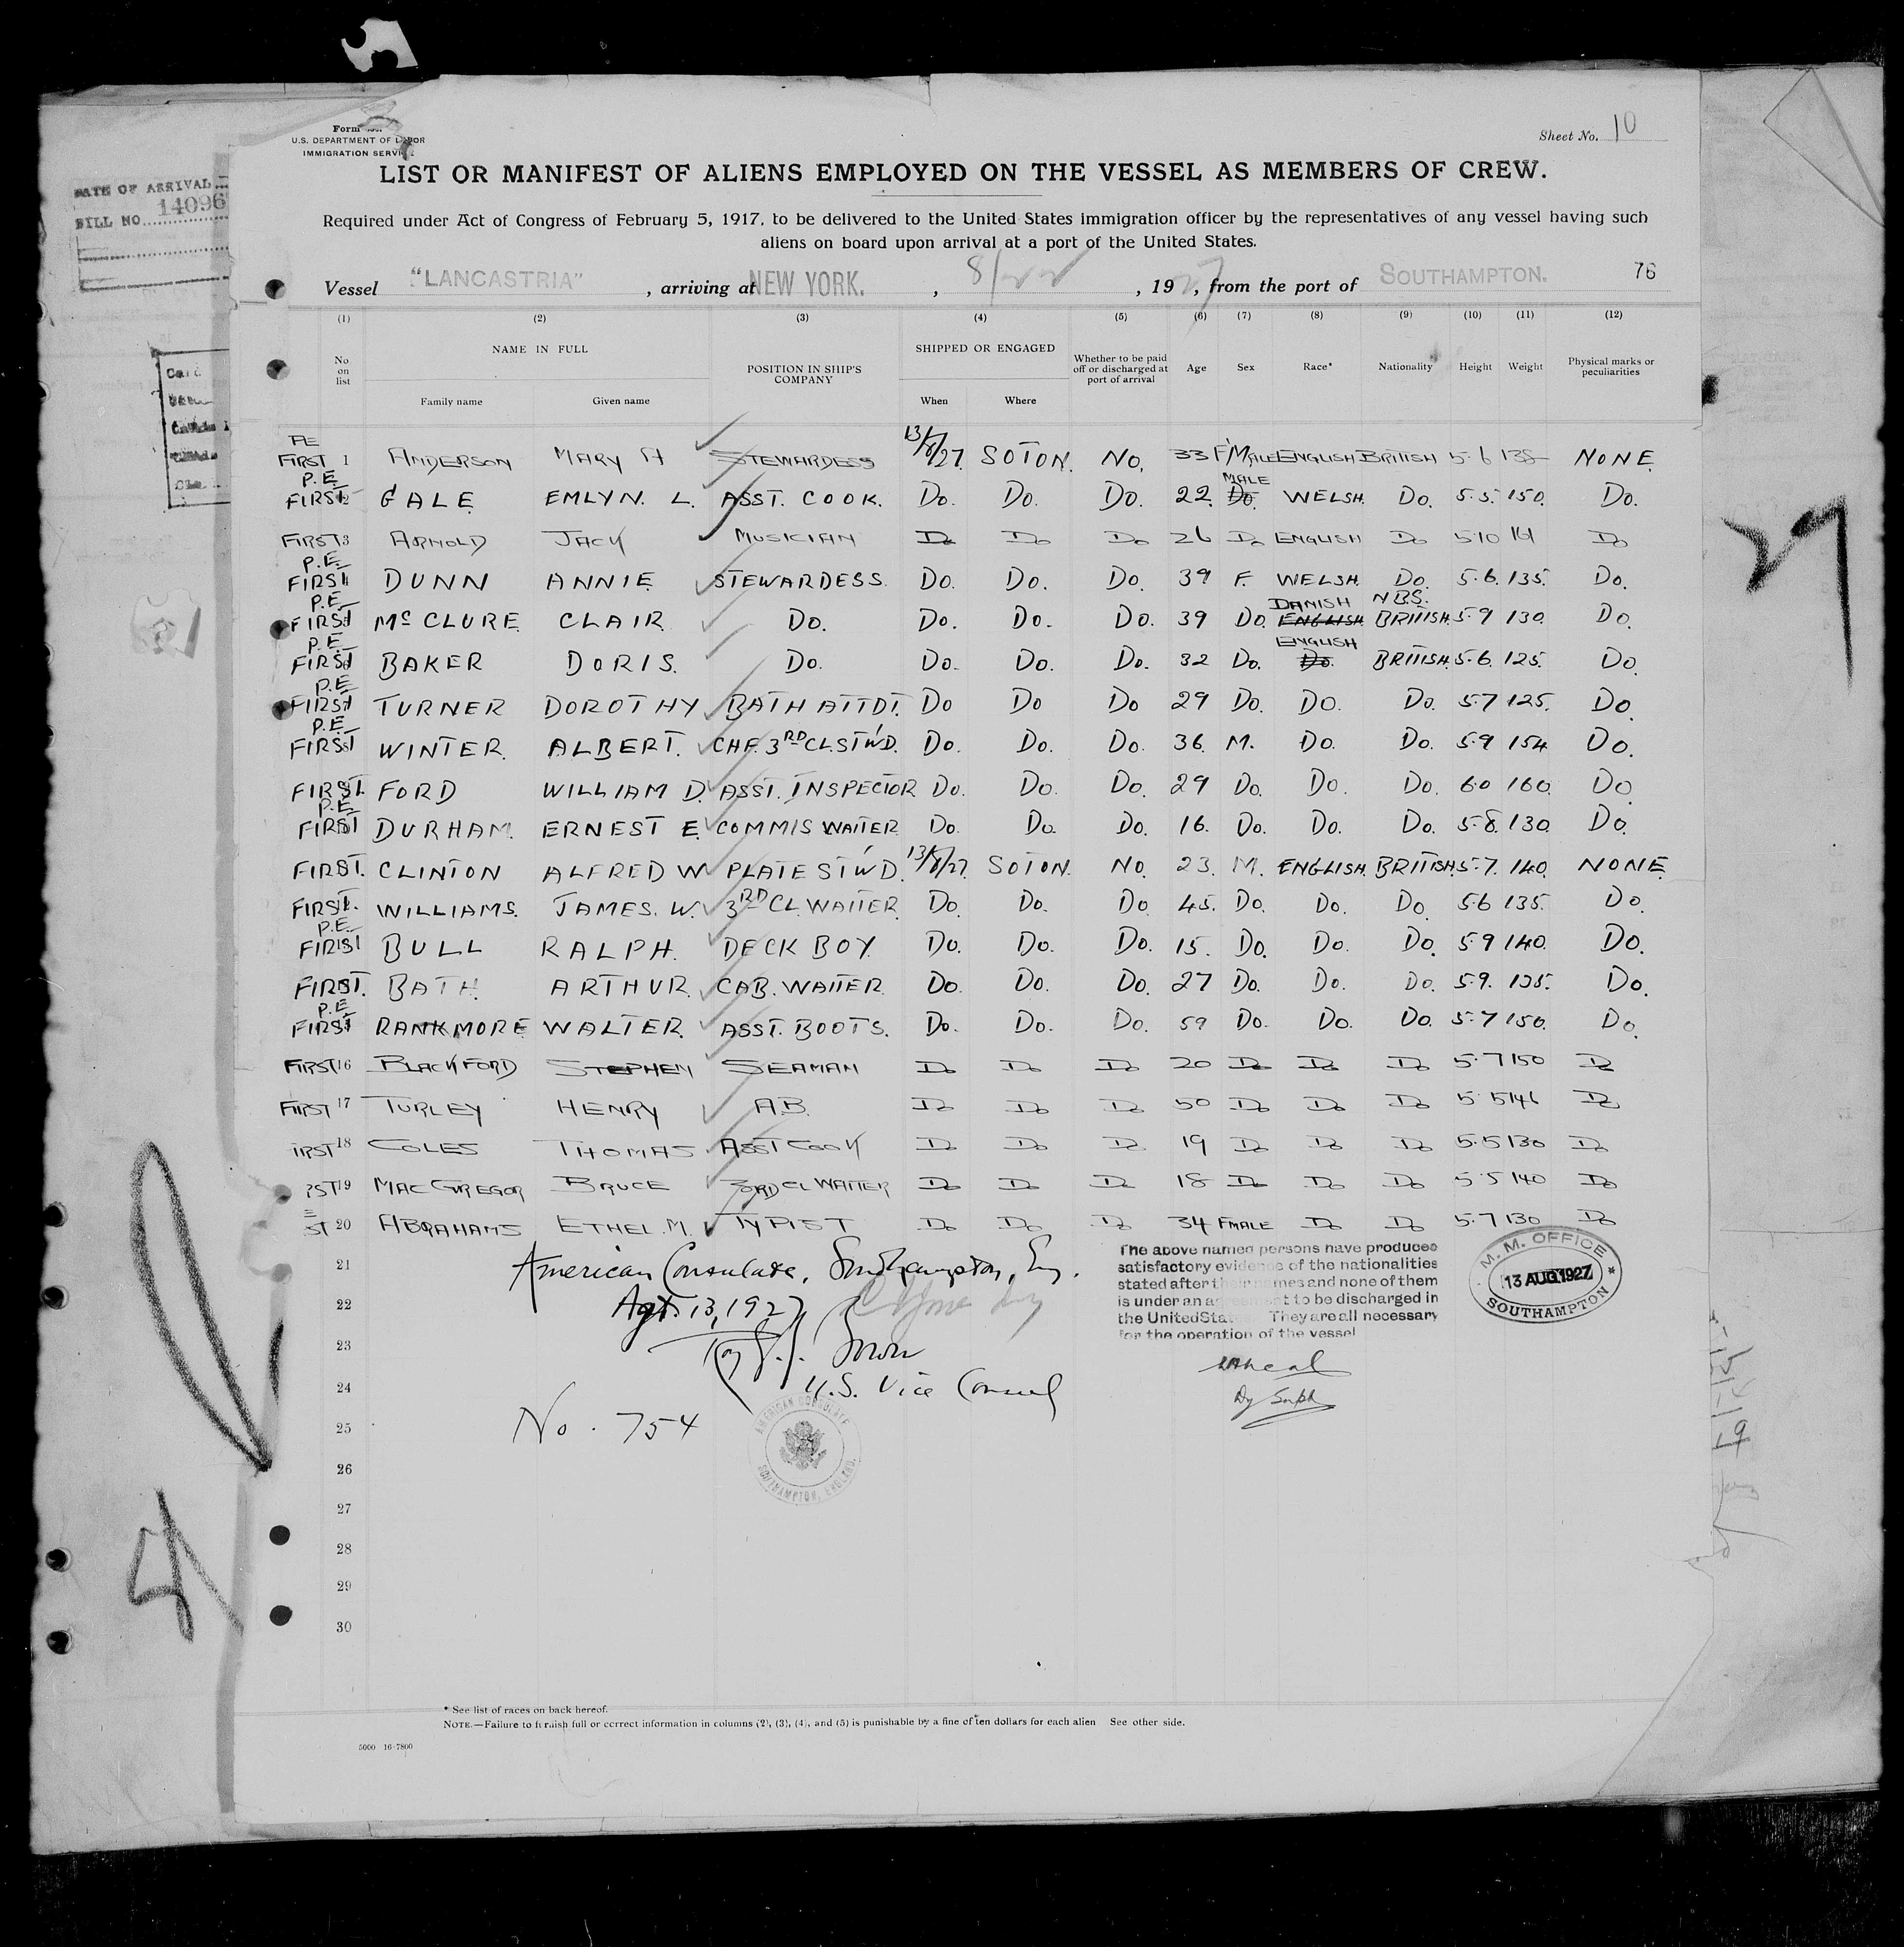 Form
U.S. DEPARTMENT OF LABOR
IMMIGRATION SERVICE
Sheet No. 10
LIST OR MANIFEST OF ALIENS EMPLOYED ON THE VESSEL AS MEMBERS OF CREW.
DATE OF ARRIVAL
BILL NO. 14096
Required under Act of Congress of February 5, 1917, to be delivered to the United States immigration officer by the representatives of any vessel having such
aliens on board upon arrival at a port of the United States.
Vessel "LANCASTRIA", arriving at NEW YORK., 8/22, 1927, from the port of SOUTHAMPTON. 76
(1) (2) (3) (4) (5) (6) (7) (8) (9) (10) (11) (12)
No on list NAME IN FULL Family name Given name POSITION IN SHIP'S COMPANY SHIPPED OR ENGAGED When Where Whether to be paid off or discharged at port of arrival Age Sex Race* Nationality Height Weight Physical marks or peculiarities
PE
FIRST 1 ANDERSON MARY A STEWARDESS 13/8/27. SOTON. NO. 33 F'MALE ENGLISH BRITISH 5.6 138 NONE
P.E. MALE
FIRST 2 GALE EMLYN. L. ASST. COOK. Do. Do. Do. 22. Do. WELSH. Do. 5.5. 150. Do.
FIRST 3 ARNOLD JACK MUSICIAN Do Do Do 26 Do ENGLISH Do 5.10 141 Do
P.E.
FIRST DUNN ANNIE STEWARDESS. Do. Do. Do. 39 F. WELSH. Do. 5.6. 135. Do.
P.E. DANISH N.B.S.
FIRST McCLURE CLAIR Do. Do. Do. Do. 39 Do. ENGLISH BRITISH. 5.9 130. Do.
P.E. ENGLISH
FIRST BAKER DORIS. Do. Do. Do. Do. 32 Do. Do. BRITISH. 5.6. 125. Do.
P.E.
FIRST TURNER DOROTHY BATH ATTDT. Do Do Do 29 Do. DO. Do. 5.7 125. Do.
P.E.
FIRST WINTER. ALBERT. CHF. 3RD CL. ST'W'D. Do. Do. Do. 36. M. Do. Do. 5.9 154 Do.
FIRST. FORD WILLIAM D. ASST. INSPECTOR Do. Do. Do. 29 Do. Do. Do. 6.0 160. Do.
P.E.
FIRST DURHAM. ERNEST E. COMMIS WAITER. Do. Do. Do. 16. Do. Do. Do. 5.8. 130. Do.
FIRST. CLINTON ALFRED W PLATE ST'W'D. 13/8/27. SOTON. NO. 23. M. ENGLISH. BRITISH. 5.7. 140. NONE
FIRST. WILLIAMS. JAMES. W. 3RD CL. WAITER. Do. Do. Do. 45. Do. Do. Do. 5.6 135. Do.
P.E.
FIRST BULL RALPH. DECK BOY. Do. Do. Do. 15. Do. Do. Do. 5.9 140. Do.
FIRST. BATH. ARTHUR. CAB. WAITER. Do. Do. Do. 27 Do. Do. Do. 5.9. 135. Do.
P.E.
FIRST RANKMORE WALTER. ASST. BOOTS. Do. Do. Do. 59 Do. Do. Do. 5.7 150. Do.
FIRST 16 BLACKFORD STEPHEN SEAMAN Do Do Do 20 Do Do Do 5.7 150 Do
FIRST 17 TURLEY HENRY A.B. Do Do Do 50 Do Do Do 5.5 146 Do
IRST 18 COLES THOMAS ASST COOK Do Do Do 19 Do Do Do 5.5 130 Do
RST 19 MACGREGOR BRUCE 3RD CL WAITER Do Do Do 18 Do Do Do 5.5 140 Do
ST 20 ABRAHAMS ETHEL. M. TYPIST Do Do Do 34 FMALE Do Do 5.7 130 Do
21
22
23
24
25
26
27
28
29
30
American Consulate, Southampton, Eng.
13, 1927
U.S. Vice Consul
No. 754
AMERICAN CONSULATE
SOUTHAMPTON, ENGLAND.
The above named persons have produced
satisfactory evidence of the nationalities
stated after their names and none of them
is under an agreement to be discharged in
the United States They are all necessary
for the operation of the vessel
M. M. OFFICE
13 AUG 1927
SOUTHAMPTON
Dy Supt
* See list of races on back hereof.
NOTE.—Failure to furnish full or correct information in columns (2), (3), (4), and (5) is punishable by a fine of ten dollars for each alien See other side.
5000 16-7800